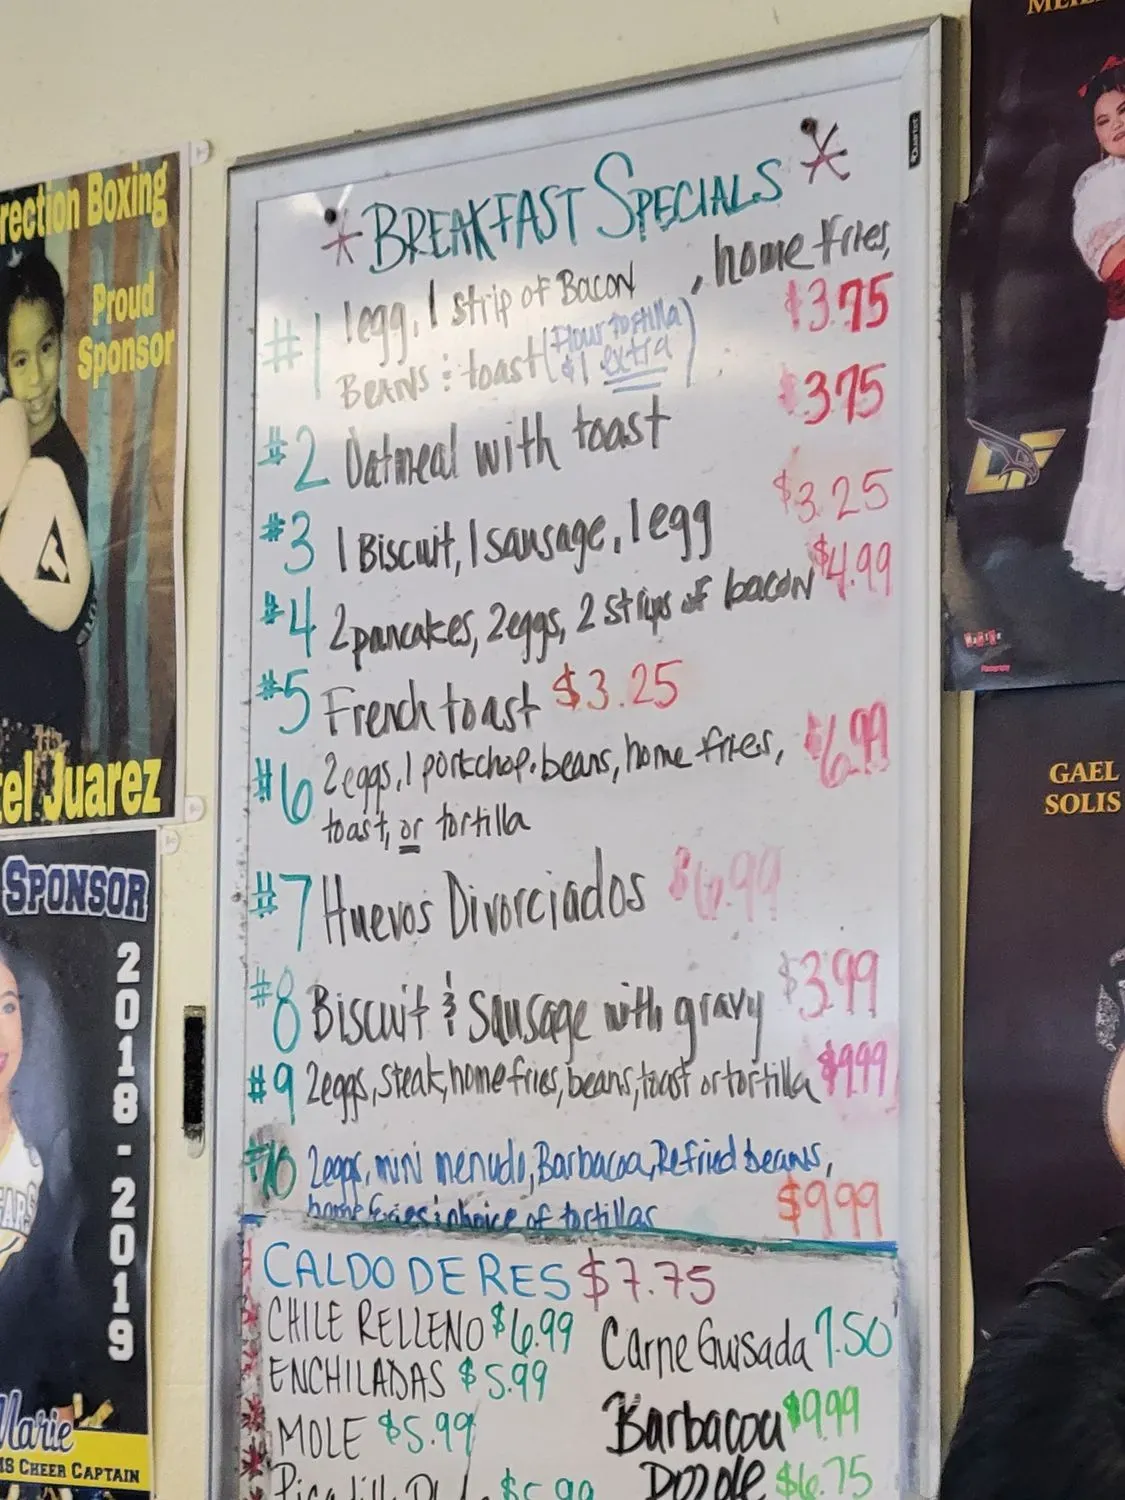 rection Boxing
Proud
Sponsor
el Juarez
SPONSOR
2018-2019
Marie
CHEER CAPTAIN
Quartet
* BREAKFAST SPECIALS *
#1 1 egg, 1 strip of Bacon, home fries,
Beans & toast (Flour tortilla $1 extra) $3.75
#2 Oatmeal with toast $3.75
#3 1 Biscuit, 1 sausage, 1 egg $3.25
#4 2 pancakes, 2 eggs, 2 strips of bacon $4.99
#5 French toast $3.25
#6 2 eggs, 1 porkchop, beans, home fries, $6.99
toast, or tortilla
#7 Huevos Divorciados $6.99
#8 Biscuit & Sausage with gravy $3.99
#9 2 eggs, steak, home fries, beans, toast or tortilla $9.99
#10 2 eggs, mini menudo, Barbacoa, Refried beans,
home fries & choice of tortillas $9.99
CALDO DE RES $7.75
CHILE RELLENO $6.99
Carne Guisada 7.50
ENCHILADAS $5.99
Barbacoa $9.99
MOLE $5.99
$6.75
$5.99
GAEL
SOLIS